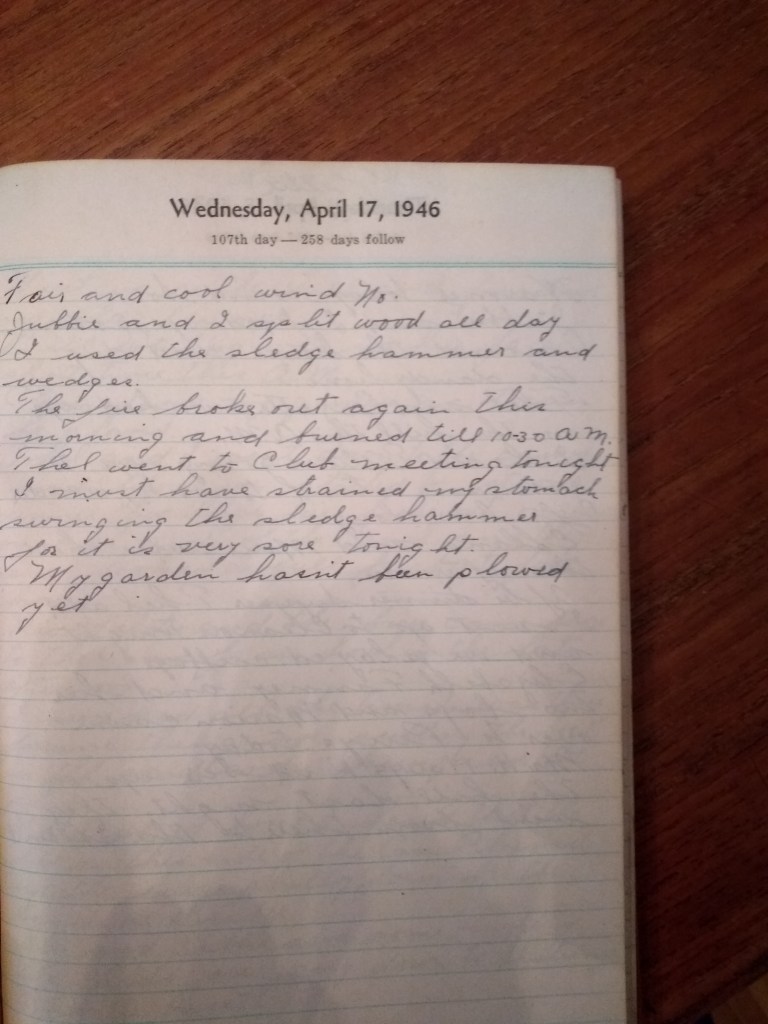 Wednesday, April 17, 1946
107th day — 258 days follow
Fair and cool wind No.
Jubbie and I split wood all day
I used the sledge hammer and
wedges.
The fire broke out again this
morning and burned till 10-30 A.M.
Thel went to Club meeting tonight
I must have strained my stomach
swinging the sledge hammer
for it is very sore tonight.
My garden hasnt been plowed
yet